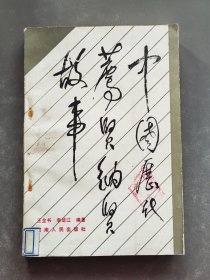 中国历代
荐贤纳贤
故事
编著
人民出版社